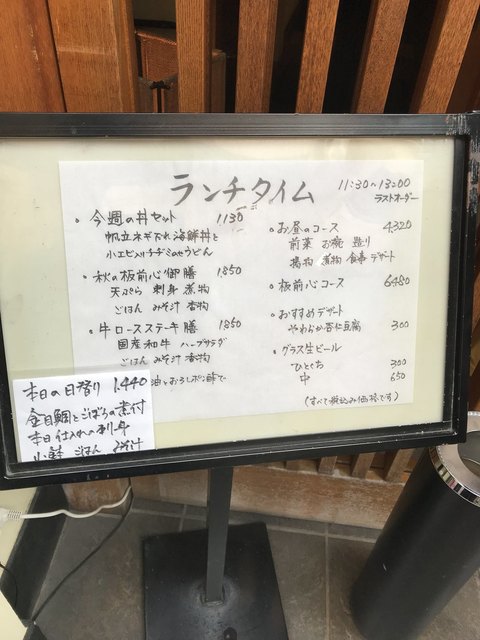 ランチタイム
11:30~13:00
ラストオーダー
・今週の丼セット 1130
帆立ネギだれ海鮮丼と
小エビ入りチヂミのせうどん
・秋の板前心御膳 1850
天ぷら 刺身 煮物
ごはん みそ汁 香物
・牛ロースステーキ膳 1850
国産和牛 ハーブサラダ
ごはん みそ汁 香物
油とおろしポン酢で
・お昼のコース 4,320
前菜 お椀 造り
揚物 煮物 食事 デザート
・板前心コース 6480
・おすすめデザート
やわらか杏仁豆腐 300
・グラス生ビール
ひとくち 300
中 650
(すべて税込み価格です)
本日の日替り 1.440
金目鯛とごぼうの煮付
本日仕入れの刺身
小鉢 ごはん みそ汁